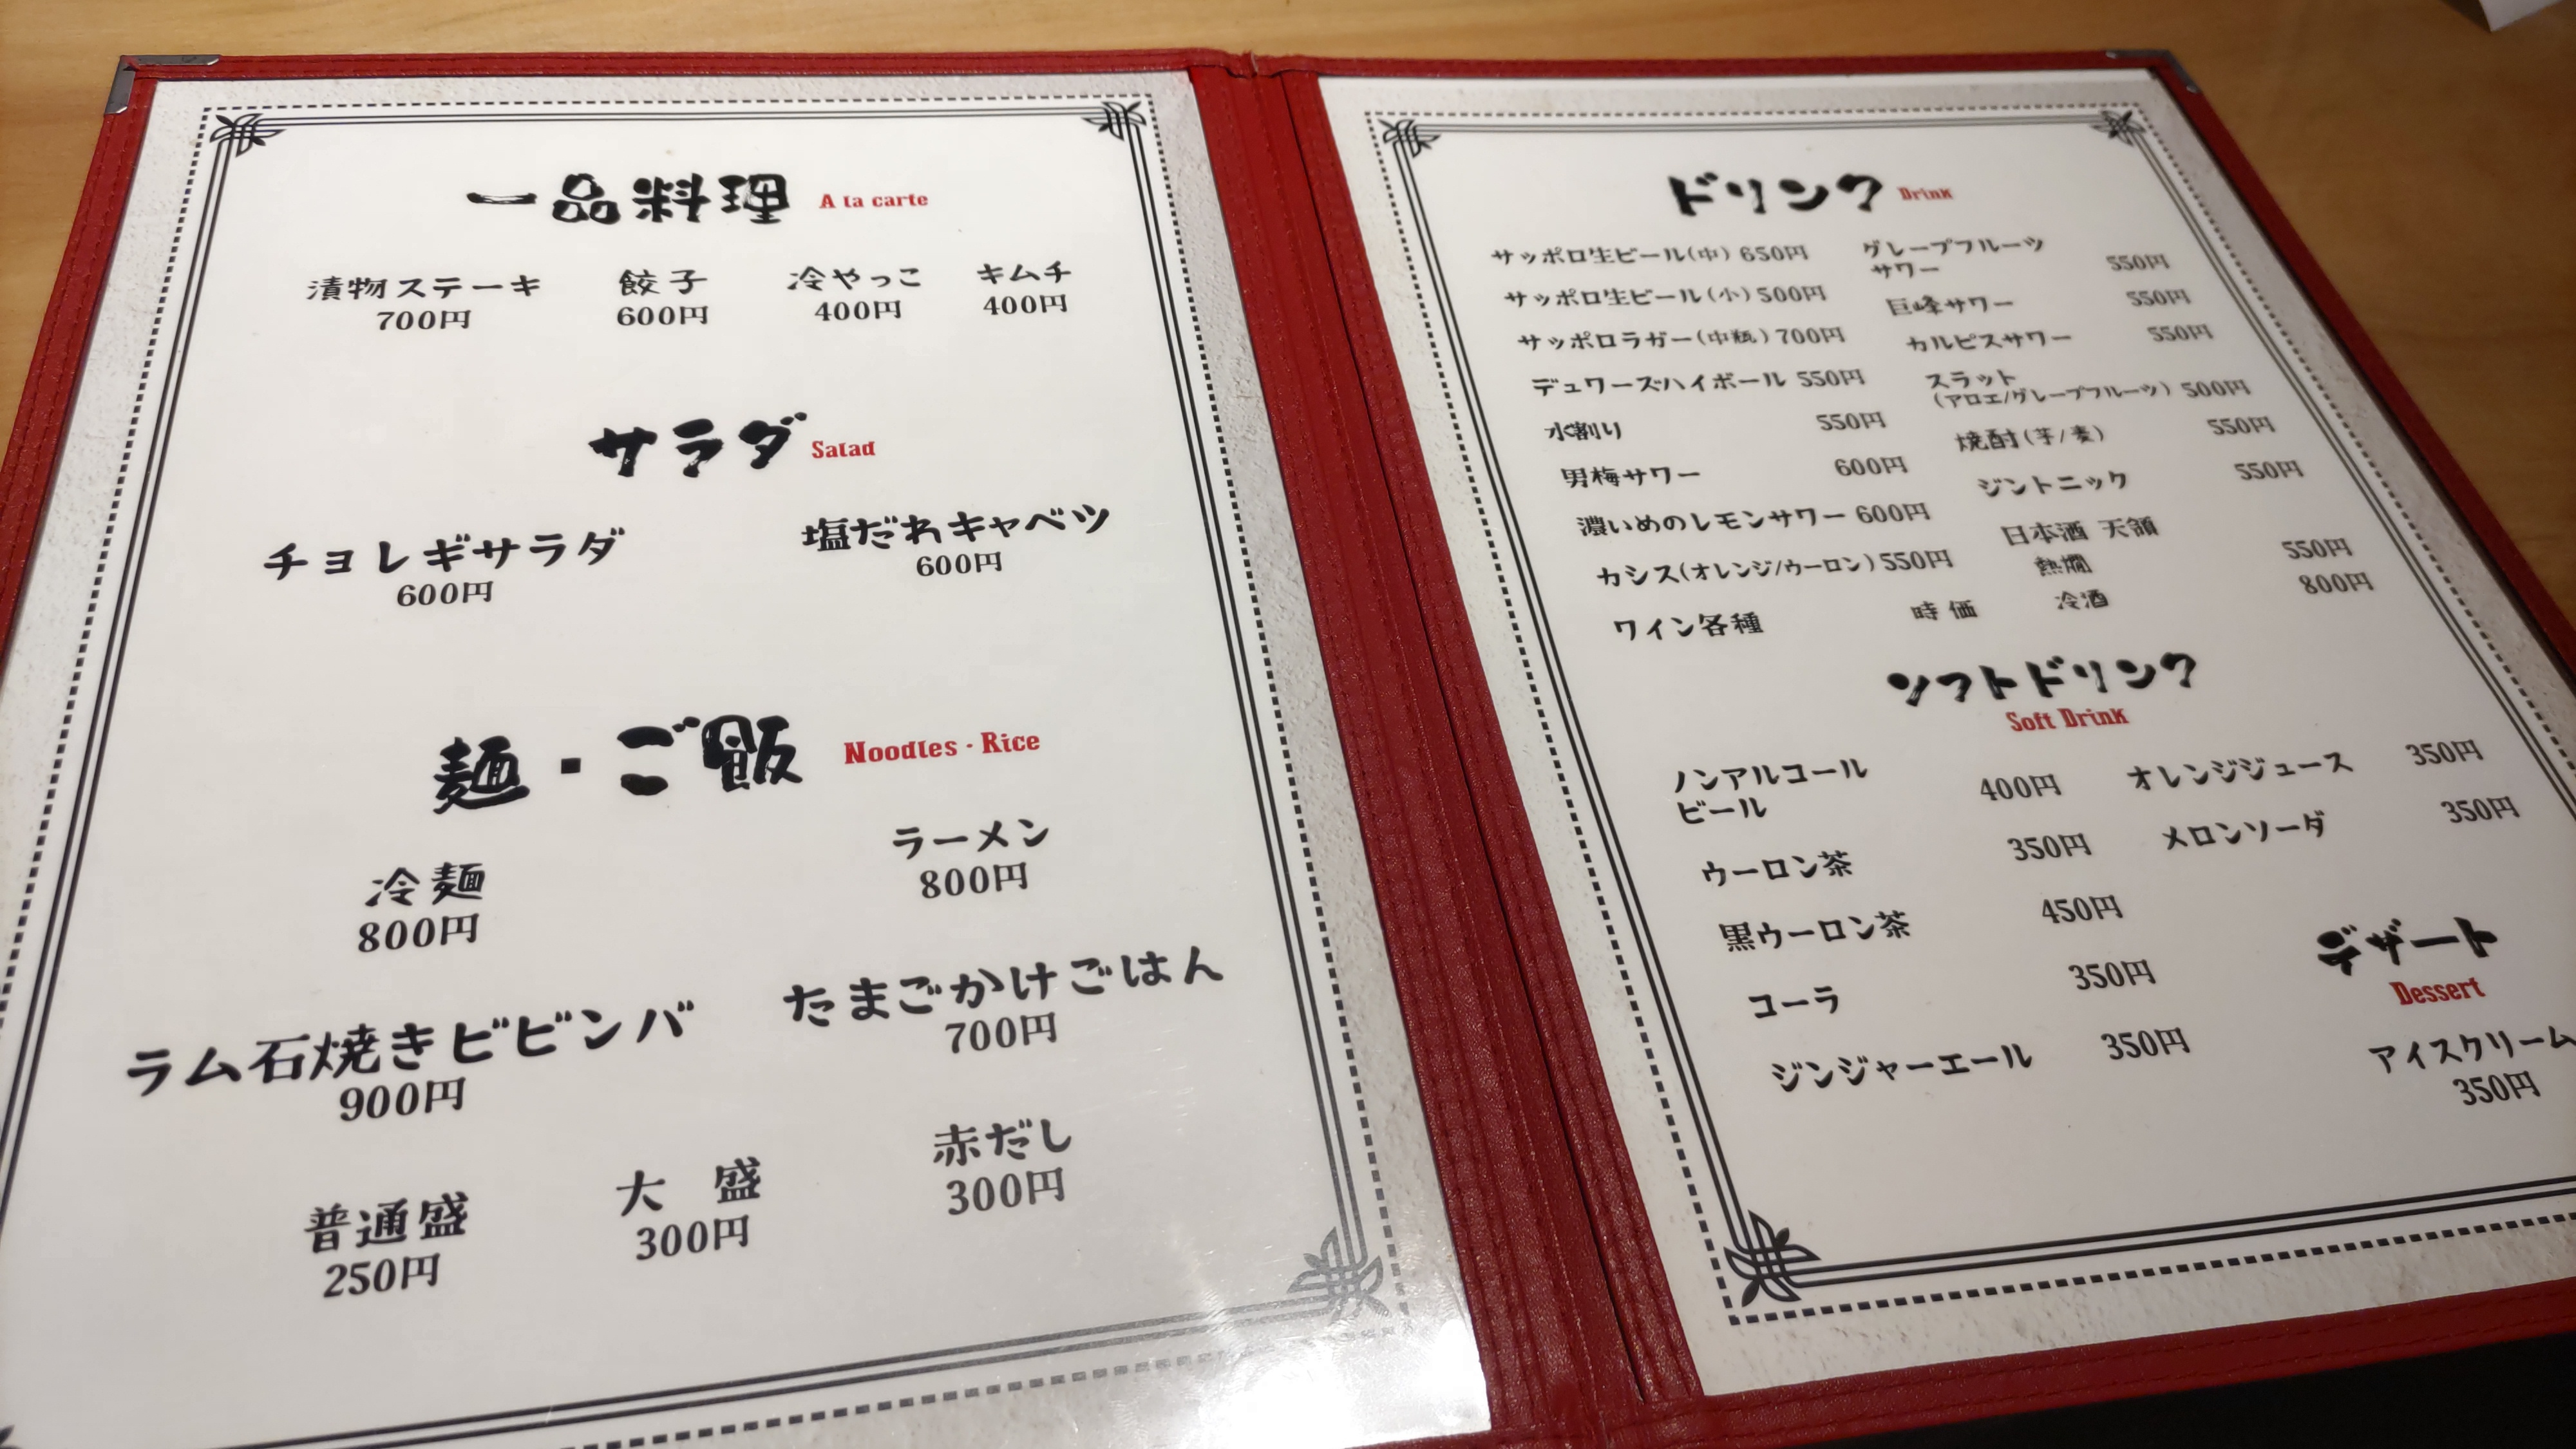 一品料理 A la carte
漬物ステーキ 餃子 冷やっこ キムチ
700円 600円 400円 400円
サラダ Salad
チョレギサラダ 塩だれキャベツ
600円 600円
麺・ご飯 Noodles・Rice
冷麺 ラーメン
800円 800円
ラム石焼きビビンバ たまごかけごはん
900円 700円
普通盛 大 盛 赤だし
250円 300円 300円
ドリンク Drink
サッポロ生ビール(中) 650円
サッポロ生ビール(小) 500円
サッポロラガー(中瓶) 700円
デュワーズハイボール 550円
水割り 550円
男梅サワー 600円
濃いめのレモンサワー 600円
カシス(オレンジ/ウーロン) 550円
ワイン各種 時価
グレープフルーツ
サワー 550円
巨峰サワー 550円
カルピスサワー 550円
スラット
(アロエ/グレープフルーツ) 500円
焼酎(芋/麦) 550円
ジントニック 550円
日本酒 天領
熱燗 550円
冷酒 800円
ソフトドリンク
Soft Drink
ノンアルコール
ビール 400円
ウーロン茶 350円
黒ウーロン茶 450円
コーラ 350円
ジンジャーエール 350円
オレンジジュース 350円
メロンソーダ 350円
デザート
Dessert
アイスクリーム
350円